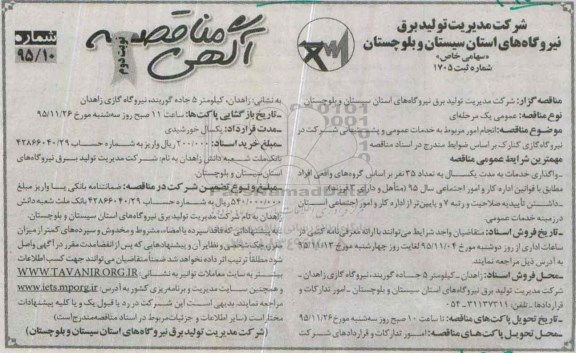 شرکت مدیریت تولید برق
نیروگاه‌های استان سیستان و بلوچستان
«سهامی خاص»
شماره ثبت ۱۷۰۵
آگهی مناقصه
نوبت دوم
شماره
۹۵/۱۰
مناقصه گزار: شرکت مدیریت تولید برق نیروگاه‌های استان سیستان و بلوچستان
نوع مناقصه: عمومی یک مرحله‌ای
موضوع مناقصه: انجام امور مربوط به خدمات عمومی و پشتیبانی شرکت در
نیروگاه گازی کنارک بر اساس ضوابط مندرج در اسناد مناقصه
مهمترین شرایط عمومی مناقصه
ـ واگذاری خدمات به مدت یکسال به تعداد ۳۵ نفر بر اساس گروه‌های واقعی افراد
مطابق با قوانین اداره کار و امور اجتماعی سال ۹۵ (متأهل و دارای ۲ فرزند)
ـ داشتن تأییدیه صلاحیت و رتبه ۷ و پایین‌تر از اداره کار و امور اجتماعی استان
در زمینه خدمات عمومی
ـ تاریخ فروش اسناد: متقاضیان واجد شرایط می‌توانند با ارائه معرفی‌نامه کتبی در
ساعات اداری از روز دوشنبه مورخ ۹۵/۱۱/۰۴ لغایت روز چهارشنبه مورخ ۹۵/۱۱/۱۳
به آدرس ذیل مراجعه نمایند.
ـ محل فروش اسناد: زاهدان ـ کیلومتر ۵ جاده گوربند، نیروگاه گازی زاهدان ـ
شرکت مدیریت تولید برق نیروگاه‌های استان سیستان و بلوچستان ـ امور تدارکات و
قراردادها ـ تلفن: ۳۱۱۳۷۲۱۱ ـ ۰۵۴
ـ تاریخ تحویل پاکت‌های مناقصه: تا ساعت ۱۰ صبح روز سه‌شنبه مورخ ۹۵/۱۱/۲۶
ـ محل تحویل پاکت‌های مناقصه: امور تدارکات و قراردادهای شرکت
به نشانی: زاهدان، کیلومتر ۵ جاده گوربند، نیروگاه گازی زاهدان
ـ تاریخ بازگشایی پاکت‌ها: ساعت ۱۱ صبح روز سه‌شنبه مورخ ۹۵/۱۱/۲۶
ـ مدت قرارداد: یکسال خورشیدی
ـ مبلغ خرید اسناد: ۲۰۰/۰۰۰ ریال واریز به شماره حساب ۴۲۸۶۶۰۴۰/۲۹
بانک ملت شعبه دانش زاهدان به نام: شرکت مدیریت تولید برق نیروگاه‌های
استان سیستان و بلوچستان
ـ مبلغ و نوع تضمین شرکت در مناقصه: ضمانتنامه بانکی یا واریز مبلغ
۵۴۰/۰۰۰/۰۰۰ ریال به شماره حساب ۴۲۸۶۶۰۴۰/۲۹ بانک ملت شعبه دانش
زاهدان به نام شرکت مدیریت تولید برق نیروگاه‌های استان سیستان و بلوچستان
ـ به پیشنهاداتی که فاقد سپرده یا امضاء، مشروط و مخدوش و سپرده‌های کمتر از میزان
مقرر، چک شخصی و نظایر آن و پیشنهادهایی که پس از انقضا مدت مقرر در آگهی واصل
شود مطلقاً ترتیب اثر داده نخواهد شد ضمناً متقاضیان می‌توانند جهت کسب اطلاعات
بیشتر به سایت معاملات توانیر به نشانی: WWW.TAVANIR.ORG.IR
و همچنین سایت مدیریت و برنامه‌ریزی کشور به آدرس: www.iets.mporg.ir
مراجعه نمایند. بدیهی است این شرکت در رد یا قبول یک و یا کلیه پیشنهادات
مختار است (سایر اطلاعات و جزئیات مربوط در اسناد مناقصه مندرج است)
(شرکت مدیریت تولید برق نیروگاه‌های استان سیستان و بلوچستان)